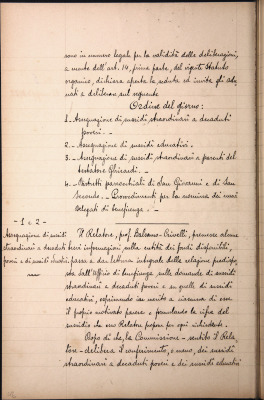 sono in numero legale per la validità delle deliberazioni,
a mente dell'art. 14, prima parte, del vigente Statuto
organico, dichiara aperta la seduta ed invita gli adu-
nati a deliberare sul seguente
Ordine del giorno:
1.- Assegnazione di sussidi straordinari a decaduti
poveri. -
2.- Assegnazione di sussidi educativi. -
3.- Assegnazione di sussidi straordinari a parenti del
testatore Ghirardi. -
4.- Distretti parrocchiali di San Giovanni e di San
Secondo. - Provvedimenti per la nomina dei nuovi
Delegati di beneficenza. -
- 1 e 2 -
Assegnazione di sussidi
straordinari a decaduti
poveri e di sussidi educativi.
Il Relatore, prof. Balsamo-Crivelli, premesse alcune
brevi informazioni sulla entità dei fondi disponibili,
passa a dar lettura integrale delle relazioni predispo-
ste dall'Ufficio di beneficenza sulle domande di sussidi
straordinari a decaduti poveri e su quelle di sussidi
educativi, esprimendo in merito a ciascuna di esse
il proprio motivato parere e formulando la cifra del
sussidio che esso Relatore propone per ogni richiedente.
Dopo di che, la Commissione - sentito il Rela-
tore - delibera il conferimento, o meno, dei sussidi
straordinari a decaduti poveri e dei sussidi educativi